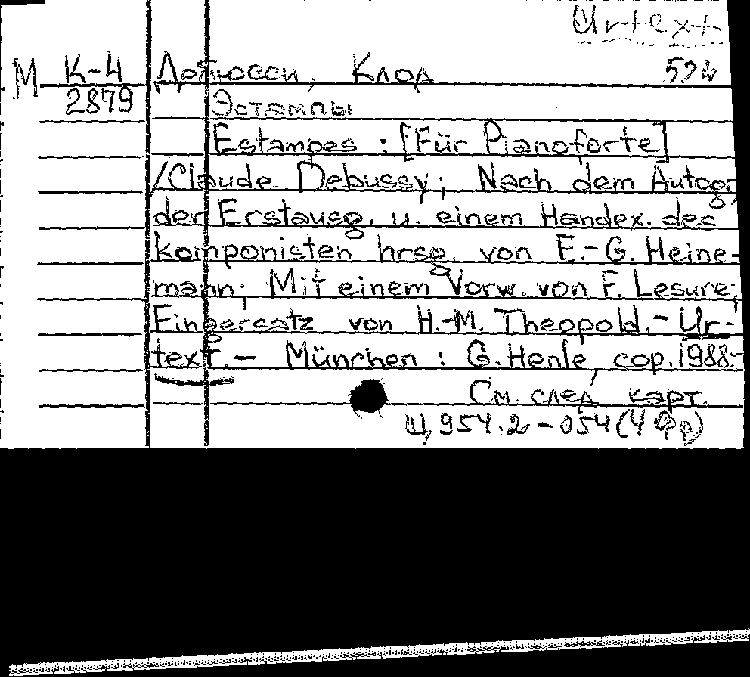 Urtext
М К-4 Дебюсси, Клод
2879 Эстампы
Estampes : [Für Pianoforte]
/Claude Debussy; Nach dem Autogr,
der Erstausg. u. einem Handex. des
komponisten hrsg. von E.-G. Heine-
mann; Mit einem Vorw. von F. Lesure;
Fingersatz von H.-M. Theopold.- Ur-
text.- München : G. Henle, cop. 1988.-
См. след. карт.
Щ954.2-054(4Фр)